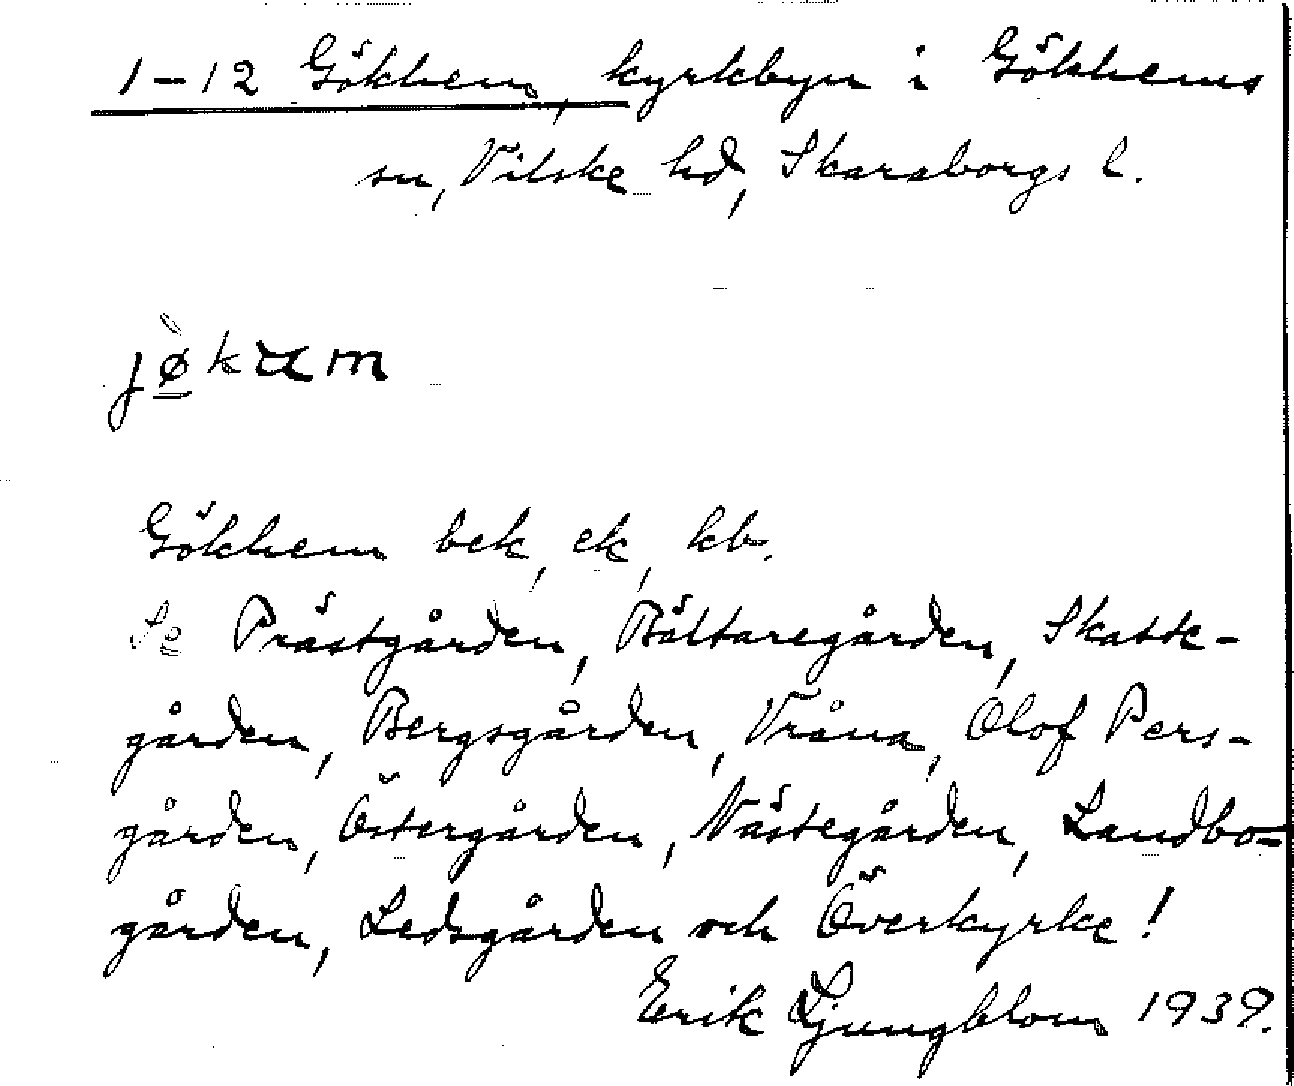 1-12 Gökhem, kyrkbyn i Gökhems
sn, Vilske hd, Skaraborgs l.
jø̀kum
Gökhem bek, ek, kb.
Se Prästgården, Bältaregården, Skatte-
gården, Bergsgården, Vråna, Olof Pers-
gården, Östergården, Nästegården, Landbo-
gården, Ledsgården och Överkyrke!
Erik Ljungblom 1939.